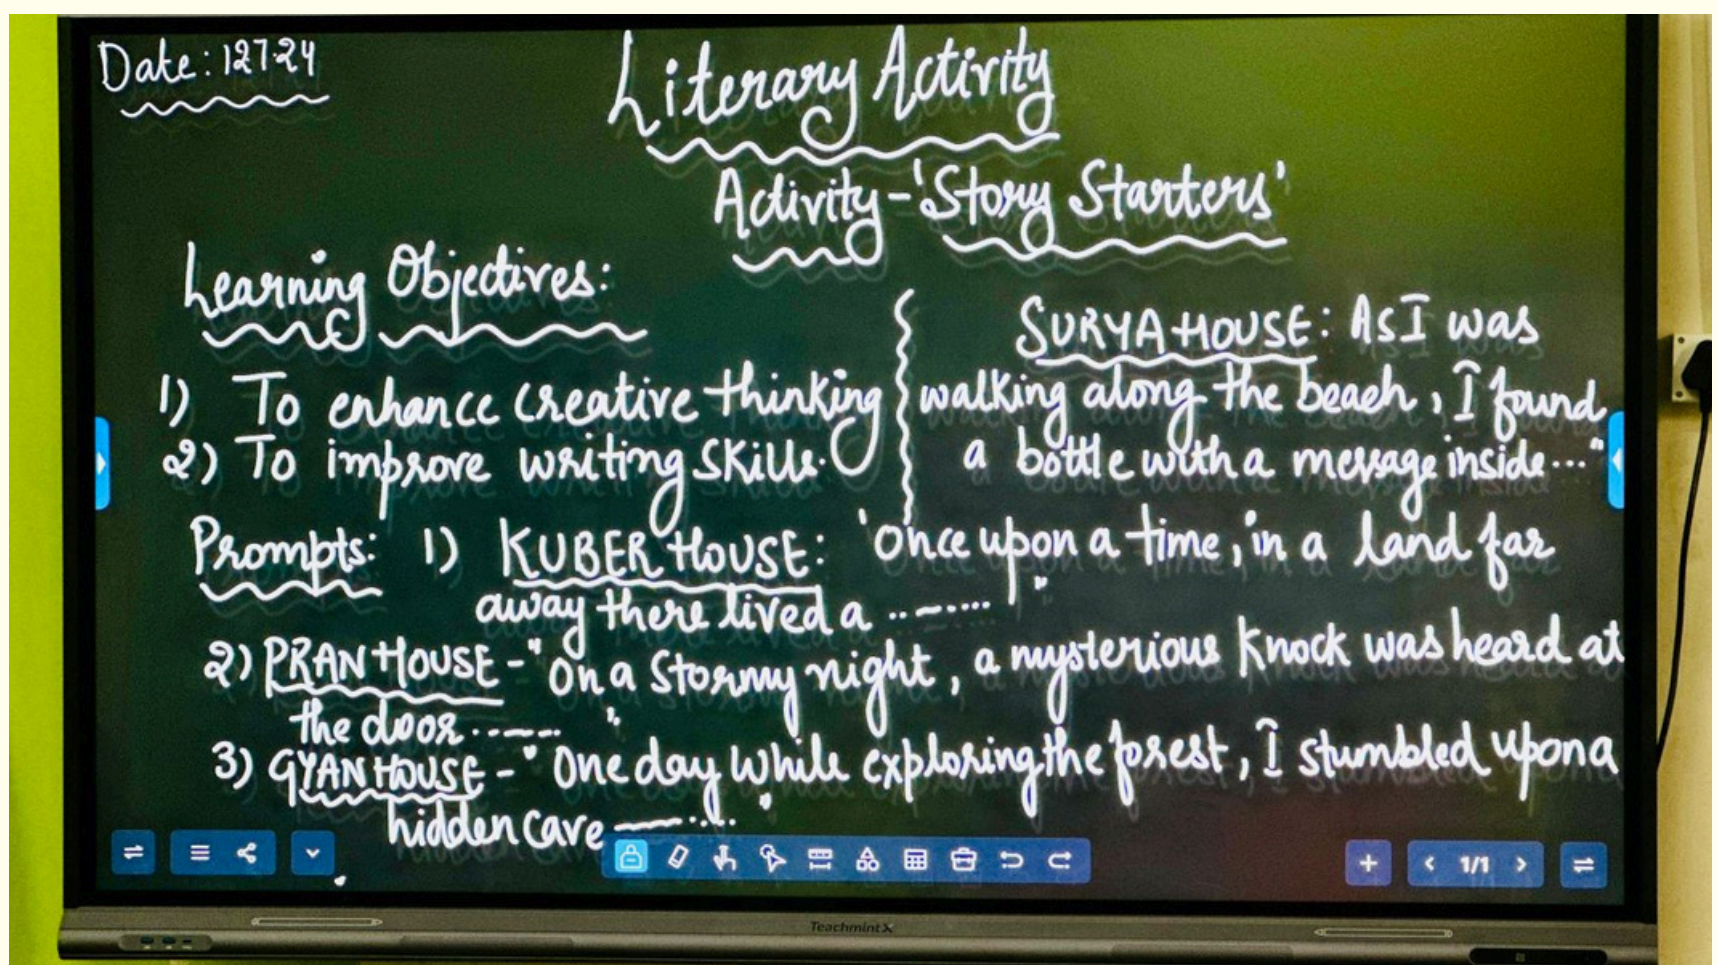 Date: 12.7.24
Literary Activity
Activity - 'Story Starters'
Learning Objectives:
1) To enhance creative thinking
2) To improve writing skills.
SURYA HOUSE: As I was
walking along the beach, I found
a bottle with a message inside..."
Prompts: 1) KUBER HOUSE: 'Once upon a time, in a land far
away there lived a ........."
2) PRAN HOUSE - "On a Stormy night, a mysterious knock was heard at
the door......."
3) GYAN HOUSE - "One day while exploring the forest, I stumbled upon a
hidden cave ......."
1/1
Teachmint X